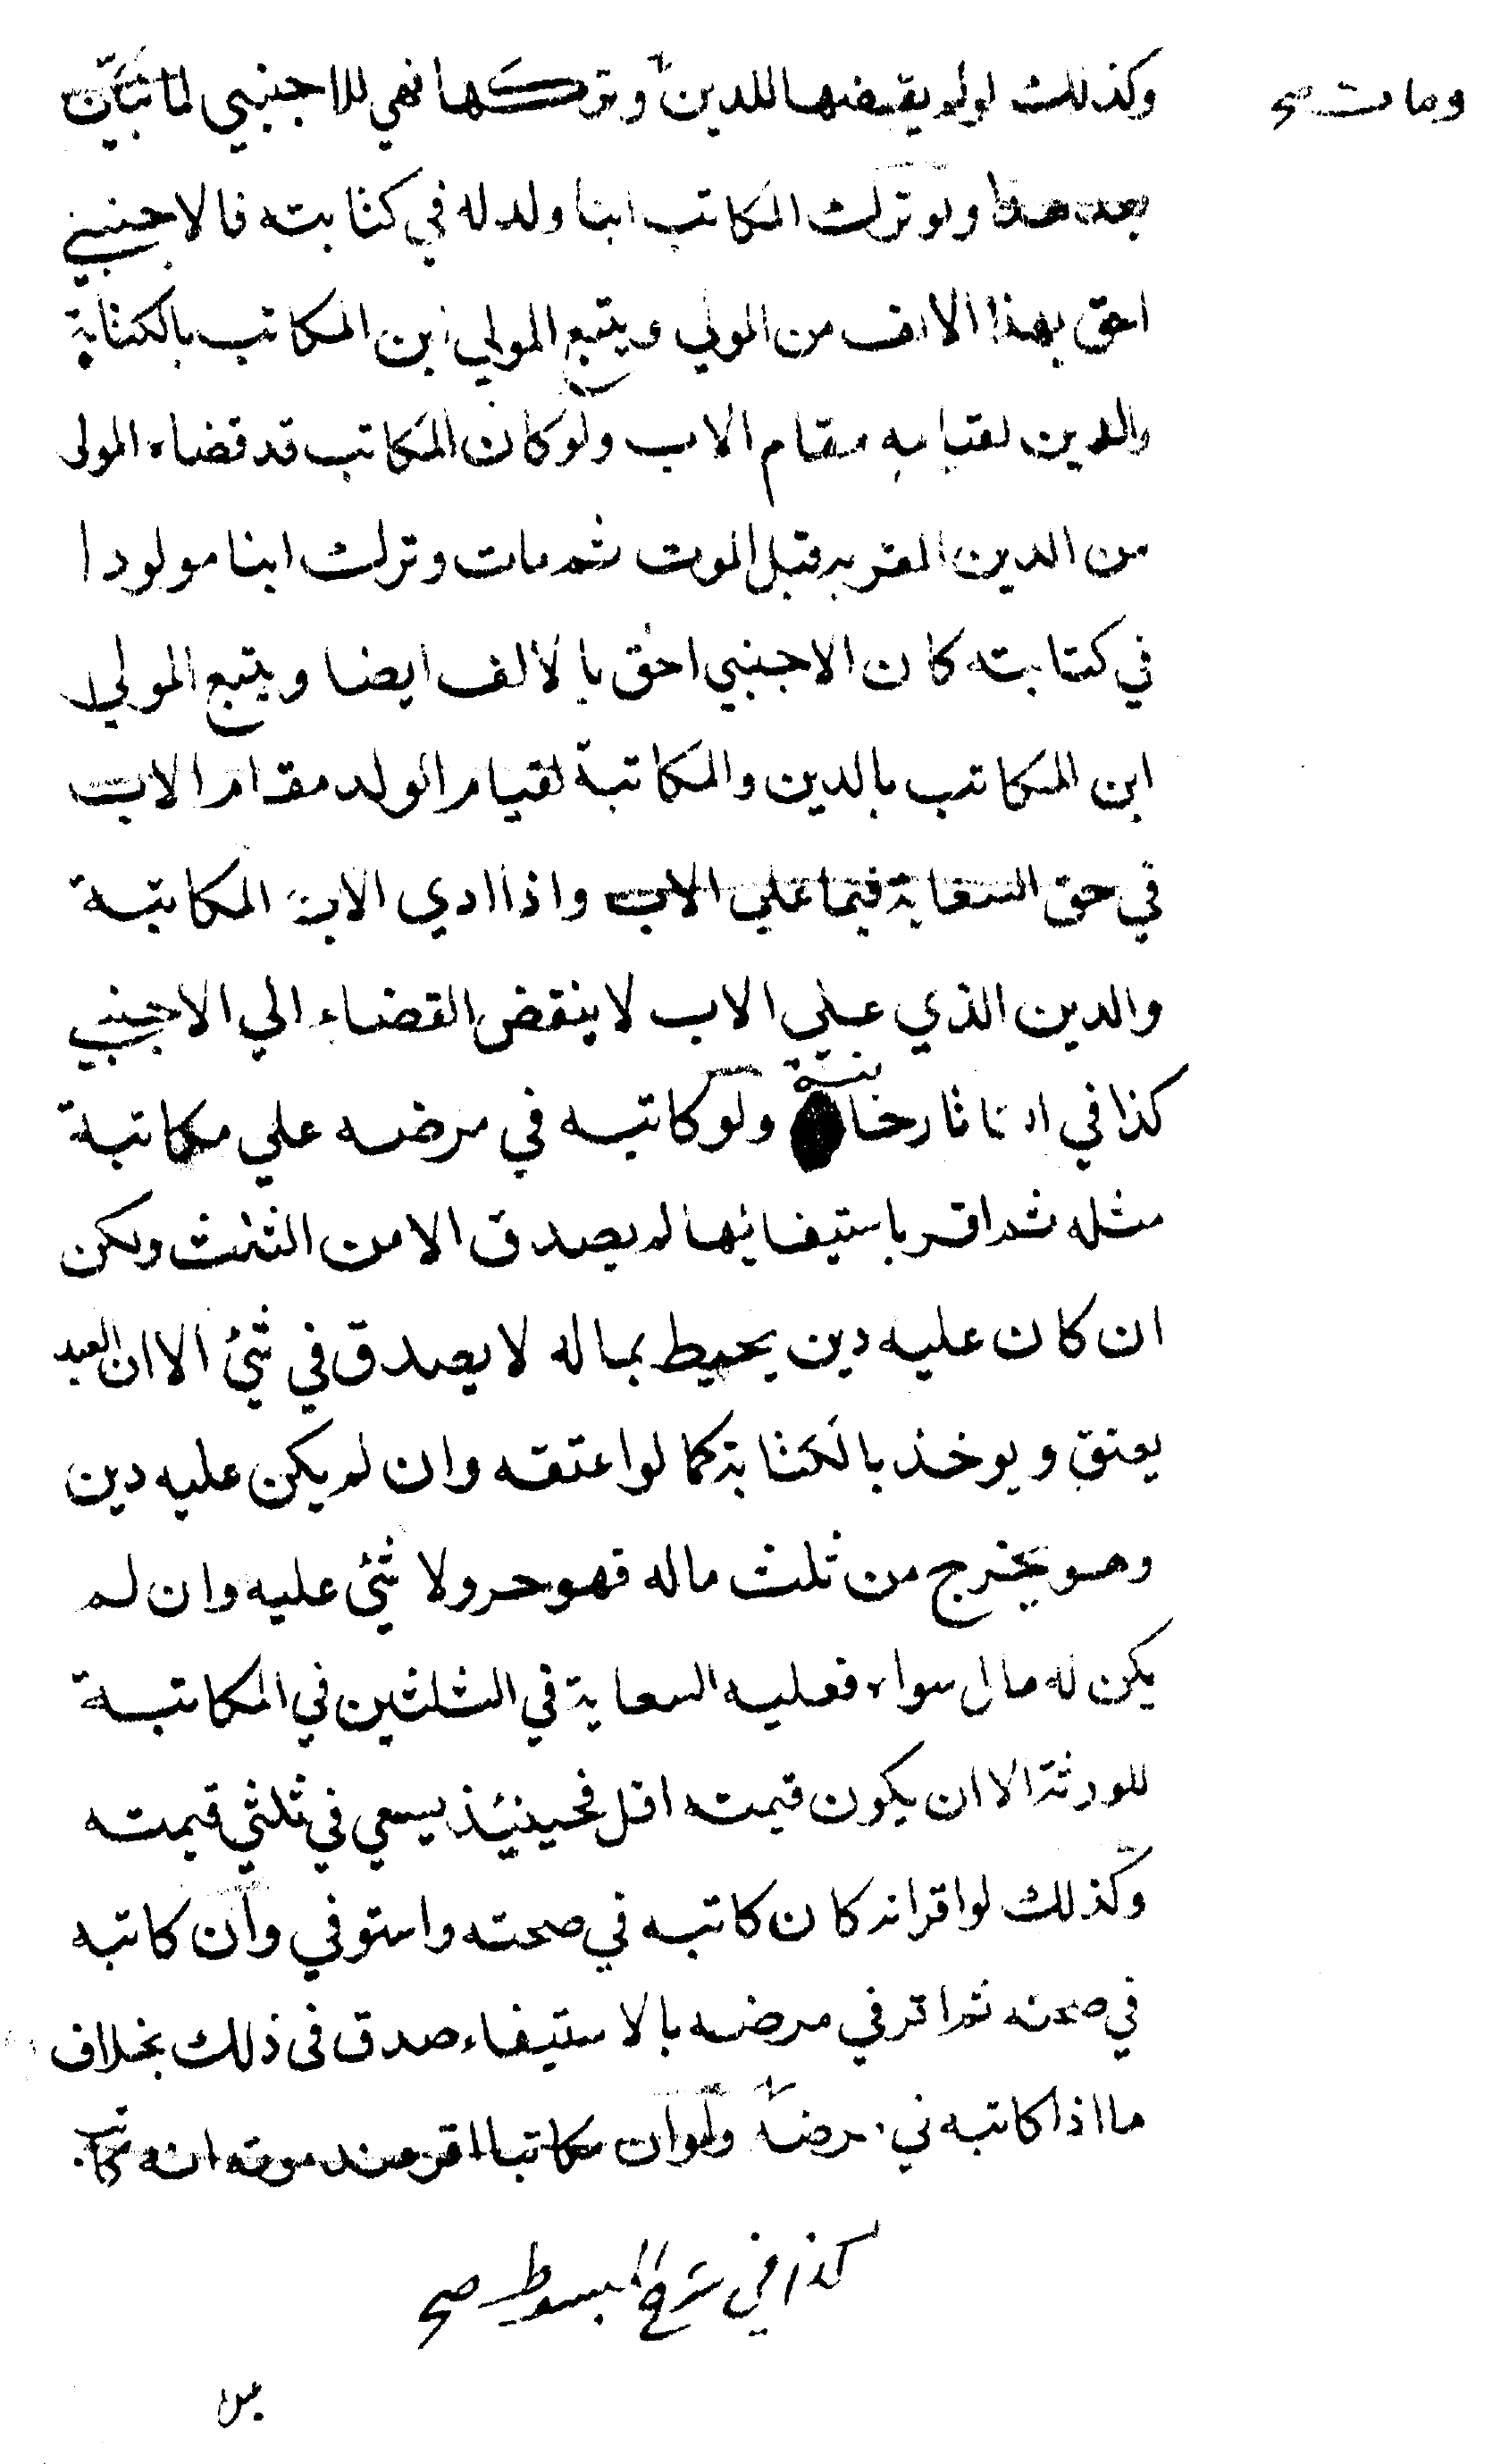 وكذلك لو لم يقبضها للدين وتركها فهي للاجنبي لما تبين
ومات صح
بعد هذا ولو ترك المكاتب ابنا ولد له في كتابته فالاجنبي
احق بهذا الالف من المولي ويتبع المولي ابن المكاتب بالكتابة
والدين لقيامه مقام الاب ولو كان المكاتب قد قضاه المولى
من الدين المقر به قبل الموت ثم مات وترك ابنا مولودا
في كتابته كان الاجنبي احق بالالف ايضا ويتبع المولي
ابن المكاتب بالدين والمكاتبة لقيام الولد مقام الاب
في حق السعاية فيما علي الاب واذا ادي الابن المكاتبة
والدين الذي علي الاب لا ينقض القضاء الي الاجنبي
كذا في التاتارخانية ولو كاتبه في مرضه علي مكاتبة
مثله ثم اقر باستيفائها لم يصدق الا من الثلث ولكن
ان كان عليه دين يحيط بماله لا يصدق في شئ الا ان العبد
يعتق ويوخذ بالكتابة كما لو اعتقه وان لم يكن عليه دين
وهو يخرج من ثلث ماله فهو حر ولا شئ عليه وان لم
يكن له مال سواه فعليه السعاية في الثلثين في المكاتبة
للورثة الا ان يكون قيمته اقل فحينئذ يسعي في ثلثي قيمته
وكذلك لو اقر انه كان كاتبه في صحته واستوفي وان كاتبه
في صحته ثم اقر في مرضه بالاستيفاء صدق في ذلك بخلاف
ما اذا كاتبه في مرضه ولو ان مكاتبا اقر عند موته انه كاتب
كذا في شرح المبسوط صح